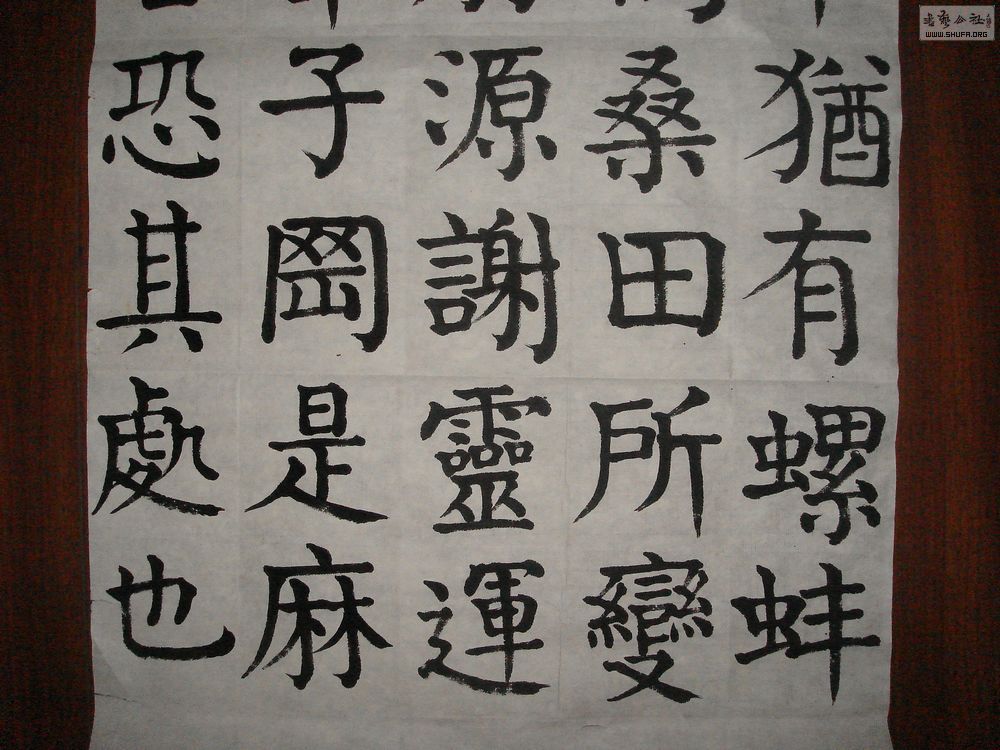 猶有螺蚌
桑田所變
源謝靈運
子罡是麻
恐其處也
WWW.SHUFA.ORG